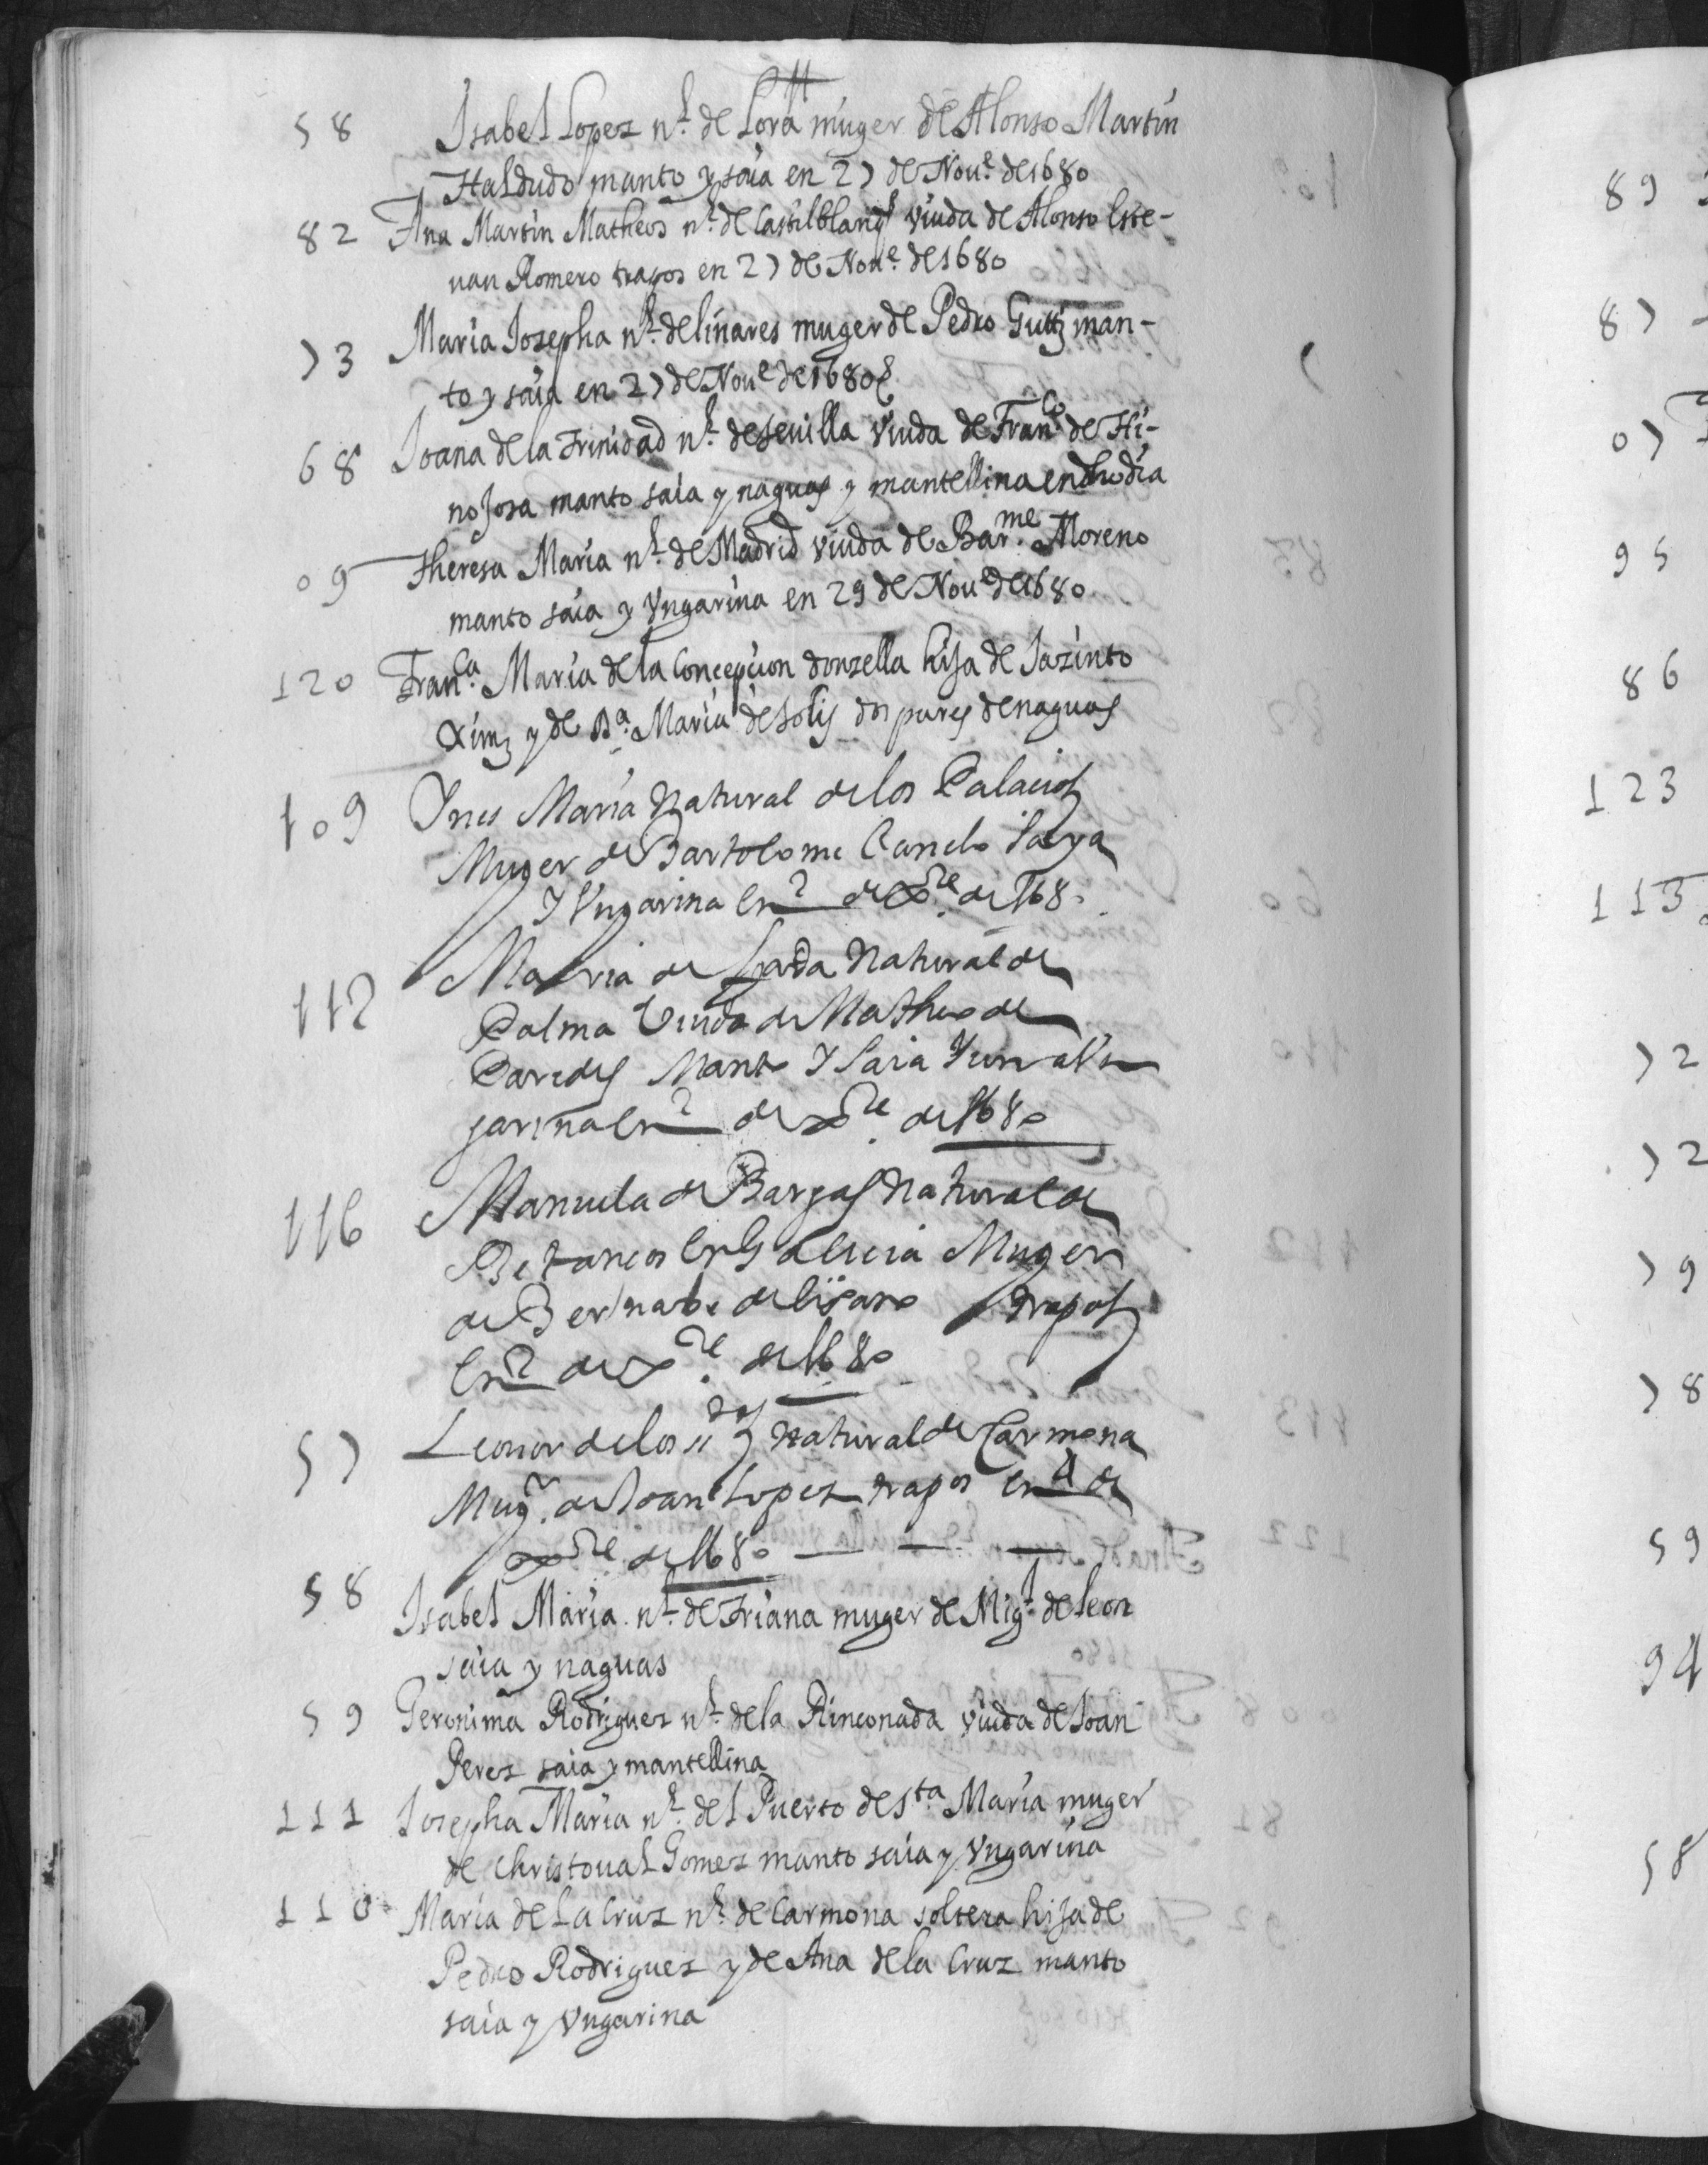 58 Isabel Lopez nl. de Lora muger de Alonso Martin
Haldudo manto y saia en 27 de Noue. de 1680
82 Ana Martin Matheos nl. de Castilblanco viuda de Alonso Este-
uan Romero trapos en 27 de Noue. de 1680
73 Maria Josepha nl. de linares muger de Pedro Guttz man-
to y saia en 27 de Noue de 1680
68 Joana de la Trinidad nl. de Seuilla viuda de Franco. de Hi-
nojosa manto saia y naguas y mantellina en dho dia
09 Theresa Maria nl. de Madrid viuda de Barme. Moreno
manto saia y Vngarina en 29 de Noue de 1680
120 Franca. Maria de la Concepcion donzella hija de Jazinto
Ximz y de Da. Maria de Solis dos pares de naguas
109 Ynes Maria Natural de los Palacios
Muger de Bartolome Canelo Saya
Y Vngarina en 2 de xre. de 1680
112 Maria de Natural de
Palma Viuda de Matheo de
Paredes Manto Y Saia Y una Vn
garina en 2 de xre. de 1680
116 Manuela de Bargas Natural de
Betancos en Galicia Muger
de Bernabe de trapos
en 2 de xre. de 1680
57 Leonor de los Rs Natural de Carmona
Mugr. de Joan Lopez trapos en 4 de
xre. de 1680
58 Isabel Maria nl. de Triana muger de Migl. de leon
saia y naguas
59 Geronima Rodriguez nl. de la Rinconada viuda de Joan
Perez saia y mantellina
111 Josepha Maria nl. del Puerto de Sta Maria muger
de Christoual Gomez manto saia y Vngarina
110 Maria de la Cruz nl. de Carmona soltera hija de
Pedro Rodriguez y de Ana de la Cruz manto
saia y Vngarina
89
87
07
95
86
123
113
72
72
79
78
59
94
58